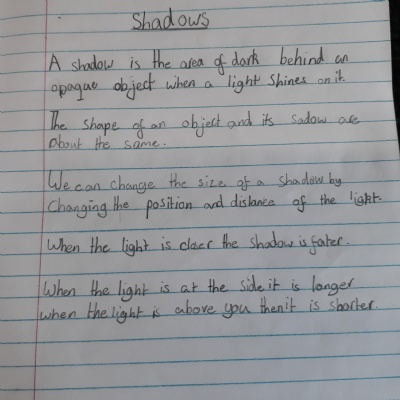 Shadows
A shadow is the area of dark behind an
opaque object when a light shines on it.
The shape of an object and its sadow are
about the same.
We can change the size of a shadow by
Changing the position and distance of the light.
When the light is claer the shadow is fater.
When the light is at the side it is longer
when the light is above you then it is shorter.